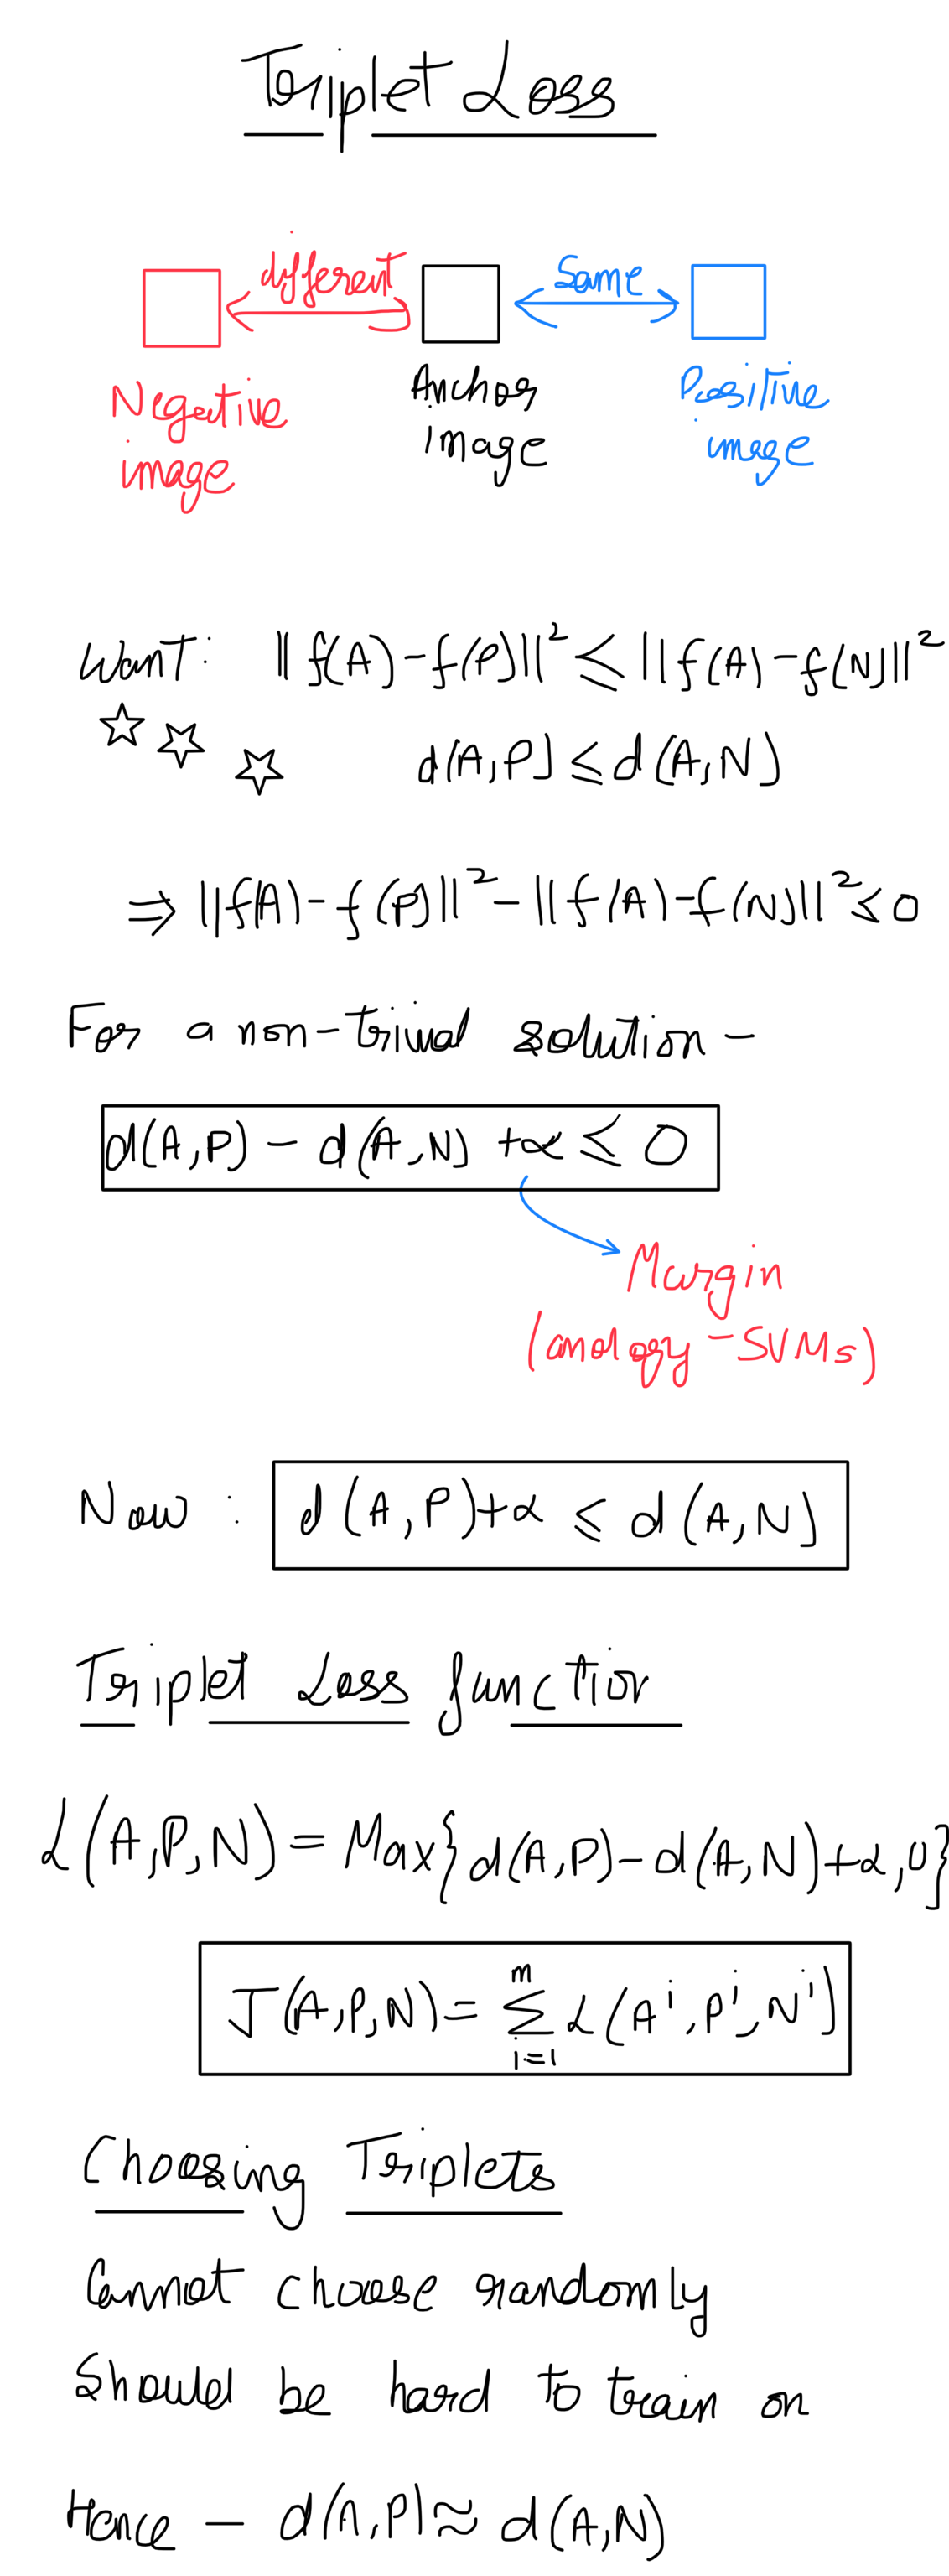 Triplet Loss
different Same
Negative image
Anchor image
Positive image
Want: ||f(A) - f(P)||² ≤ ||f(A) - f(N)||²
d(A,P) ≤ d(A,N)
⇒ ||f(A) - f(P)||² - ||f(A) - f(N)||² ≤ 0
For a non-trivial solution -
d(A,P) - d(A,N) + α ≤ 0
Margin
(analogy - SVMs)
Now : d(A,P) + α ≤ d(A,N)
Triplet Loss function
L(A,P,N) = Max{d(A,P) - d(A,N) + α, 0}
J(A,P,N) = Σᵢ₌₁ᵐ L(Aⁱ, Pⁱ, Nⁱ)
Choosing Triplets
Cannot choose randomly
Should be hard to train on
Hence - d(A,P) ≈ d(A,N)